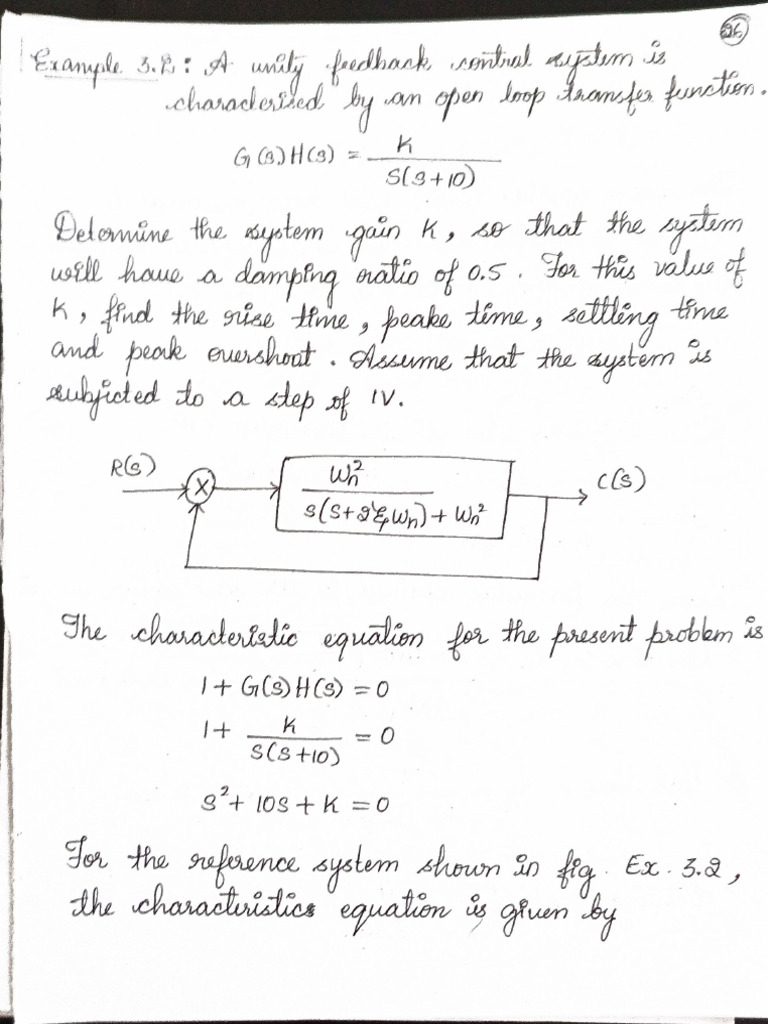 26
Example 3.2: A unity feedback control system is
characterised by an open loop transfer function.
G(s)H(s) = K / S(S+10)
Determine the system gain K, so that the system
will have a damping ratio of 0.5. For this value of
K, find the rise time, peake time, settling time
and peak overshoot. Assume that the system is
subjicted to a step of 1V.
R(s) X ωn² / s(s+2ξωn)+ωn² C(s)
The characteristic equation for the present problem is
1 + G(s)H(s) = 0
1 + K / S(S+10) = 0
S² + 10S + K = 0
For the reference system shown in fig. Ex. 3.2,
the characteristics equation is given by